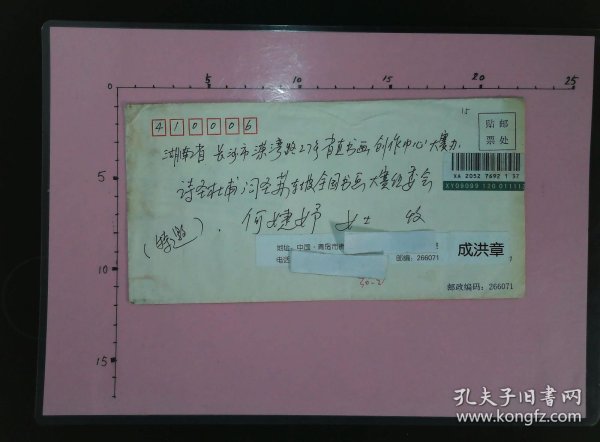 0 5 10 15 20 25
5
10
15
410006
15
贴邮
票处
湖南省长沙市溁湾路27号省直书画创作中心大赛办
诗圣杜甫词圣苏东坡全国书画大赛组委会
XA 2052 7692 1 37
XY09099 120 01111
何婕妤 女士 收
(特邀)
地址:中国·青岛市
电话:
邮编:266071
成洪章
7
30-2
邮政编码:266071
孔夫子旧书网
www.kongfz.com